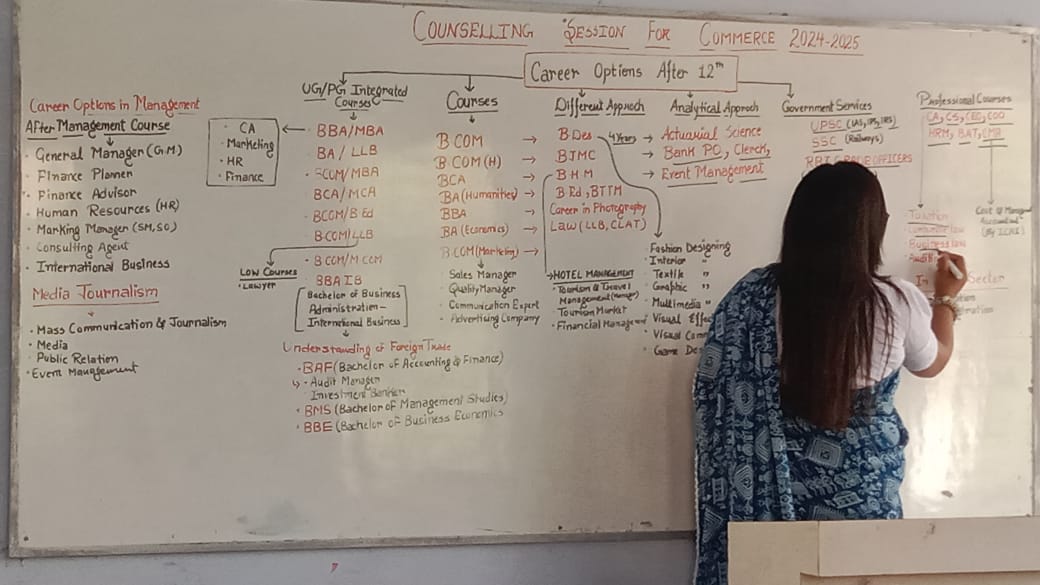 COUNSELLING SESSION FOR COMMERCE 2024-2025
Career Options After 12th
Career Options in Management
After Management Course
General Manager (G.M)
Finance Planner
Finance Advisor
Human Resources (HR)
Marking Manager (SM, SO)
Consulting Agent
International Business
Media Journalism
Mass Communication & Journalism
Media
Public Relation
Event Management
CA
Marketing
HR
Finance
UG/PG Integrated
Courses
BBA/MBA
BA/LLB
BCOM/MBA
BCA/MCA
BCOM/B Ed
B.COM/LLB
BCOM/M COM
BBA IB
LOW Courses
Lawyer
Bachelor of Business
Administration-
International Business
Understanding of Foreign Trade
BAF (Bachelor of Accounting & Finance)
Audit Manager
Investment Banker
BMS (Bachelor of Management Studies)
BBE (Bachelor of Business Economics
Courses
B COM
B.COM (H)
BCA
BA (Humanities)
BBA
BA (Economics)
B.COM (Marketing)
Sales Manager
Quality Manager
Communication Expert
Advertising Company
Different Approch
B Des
BJMC
B H M
B Ed, BTTM
Career in Photography
Law (LLB, CLAT)
HOTEL MANAGEMENT
Tourism & Travel
Management (Manager)
Tourism Market
Financial Management
4 Years
Analytical Approch
Actuarial Science
Bank PO, Clerck,
Event Management
Fashion Designing
Interior "
Textile "
Graphic "
Multimedia "
Visual Effec
Visual Com
Game De
Government Services
UPSC (IAS, IPS, IRS)
SSC (Railways)
RBI GRADE OFFICERS
Professional Courses
CA, CS, CEO, COO
HRM, BAT, CMA
Taxation
Business law
Audit
Sector
Cost & Manag
Accountant